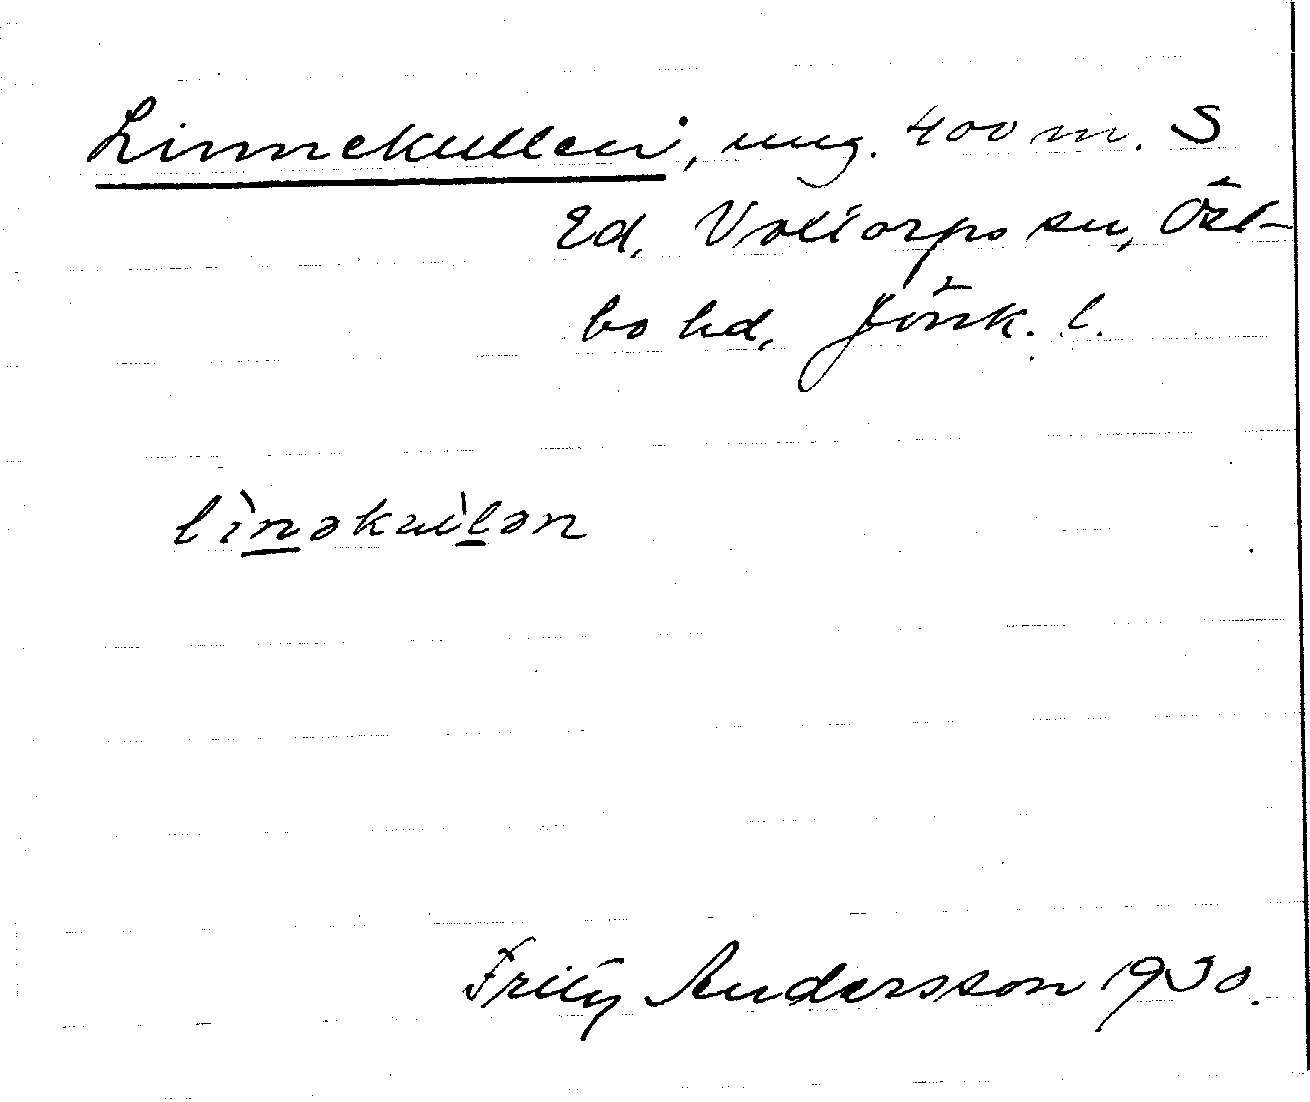 Linnekullen, ung. 400 m. S
Ed, Voxtorps sn, Öst-
bo hd, Jönk. l.
lìnəkuìlən
Fritz Andersson 1930.